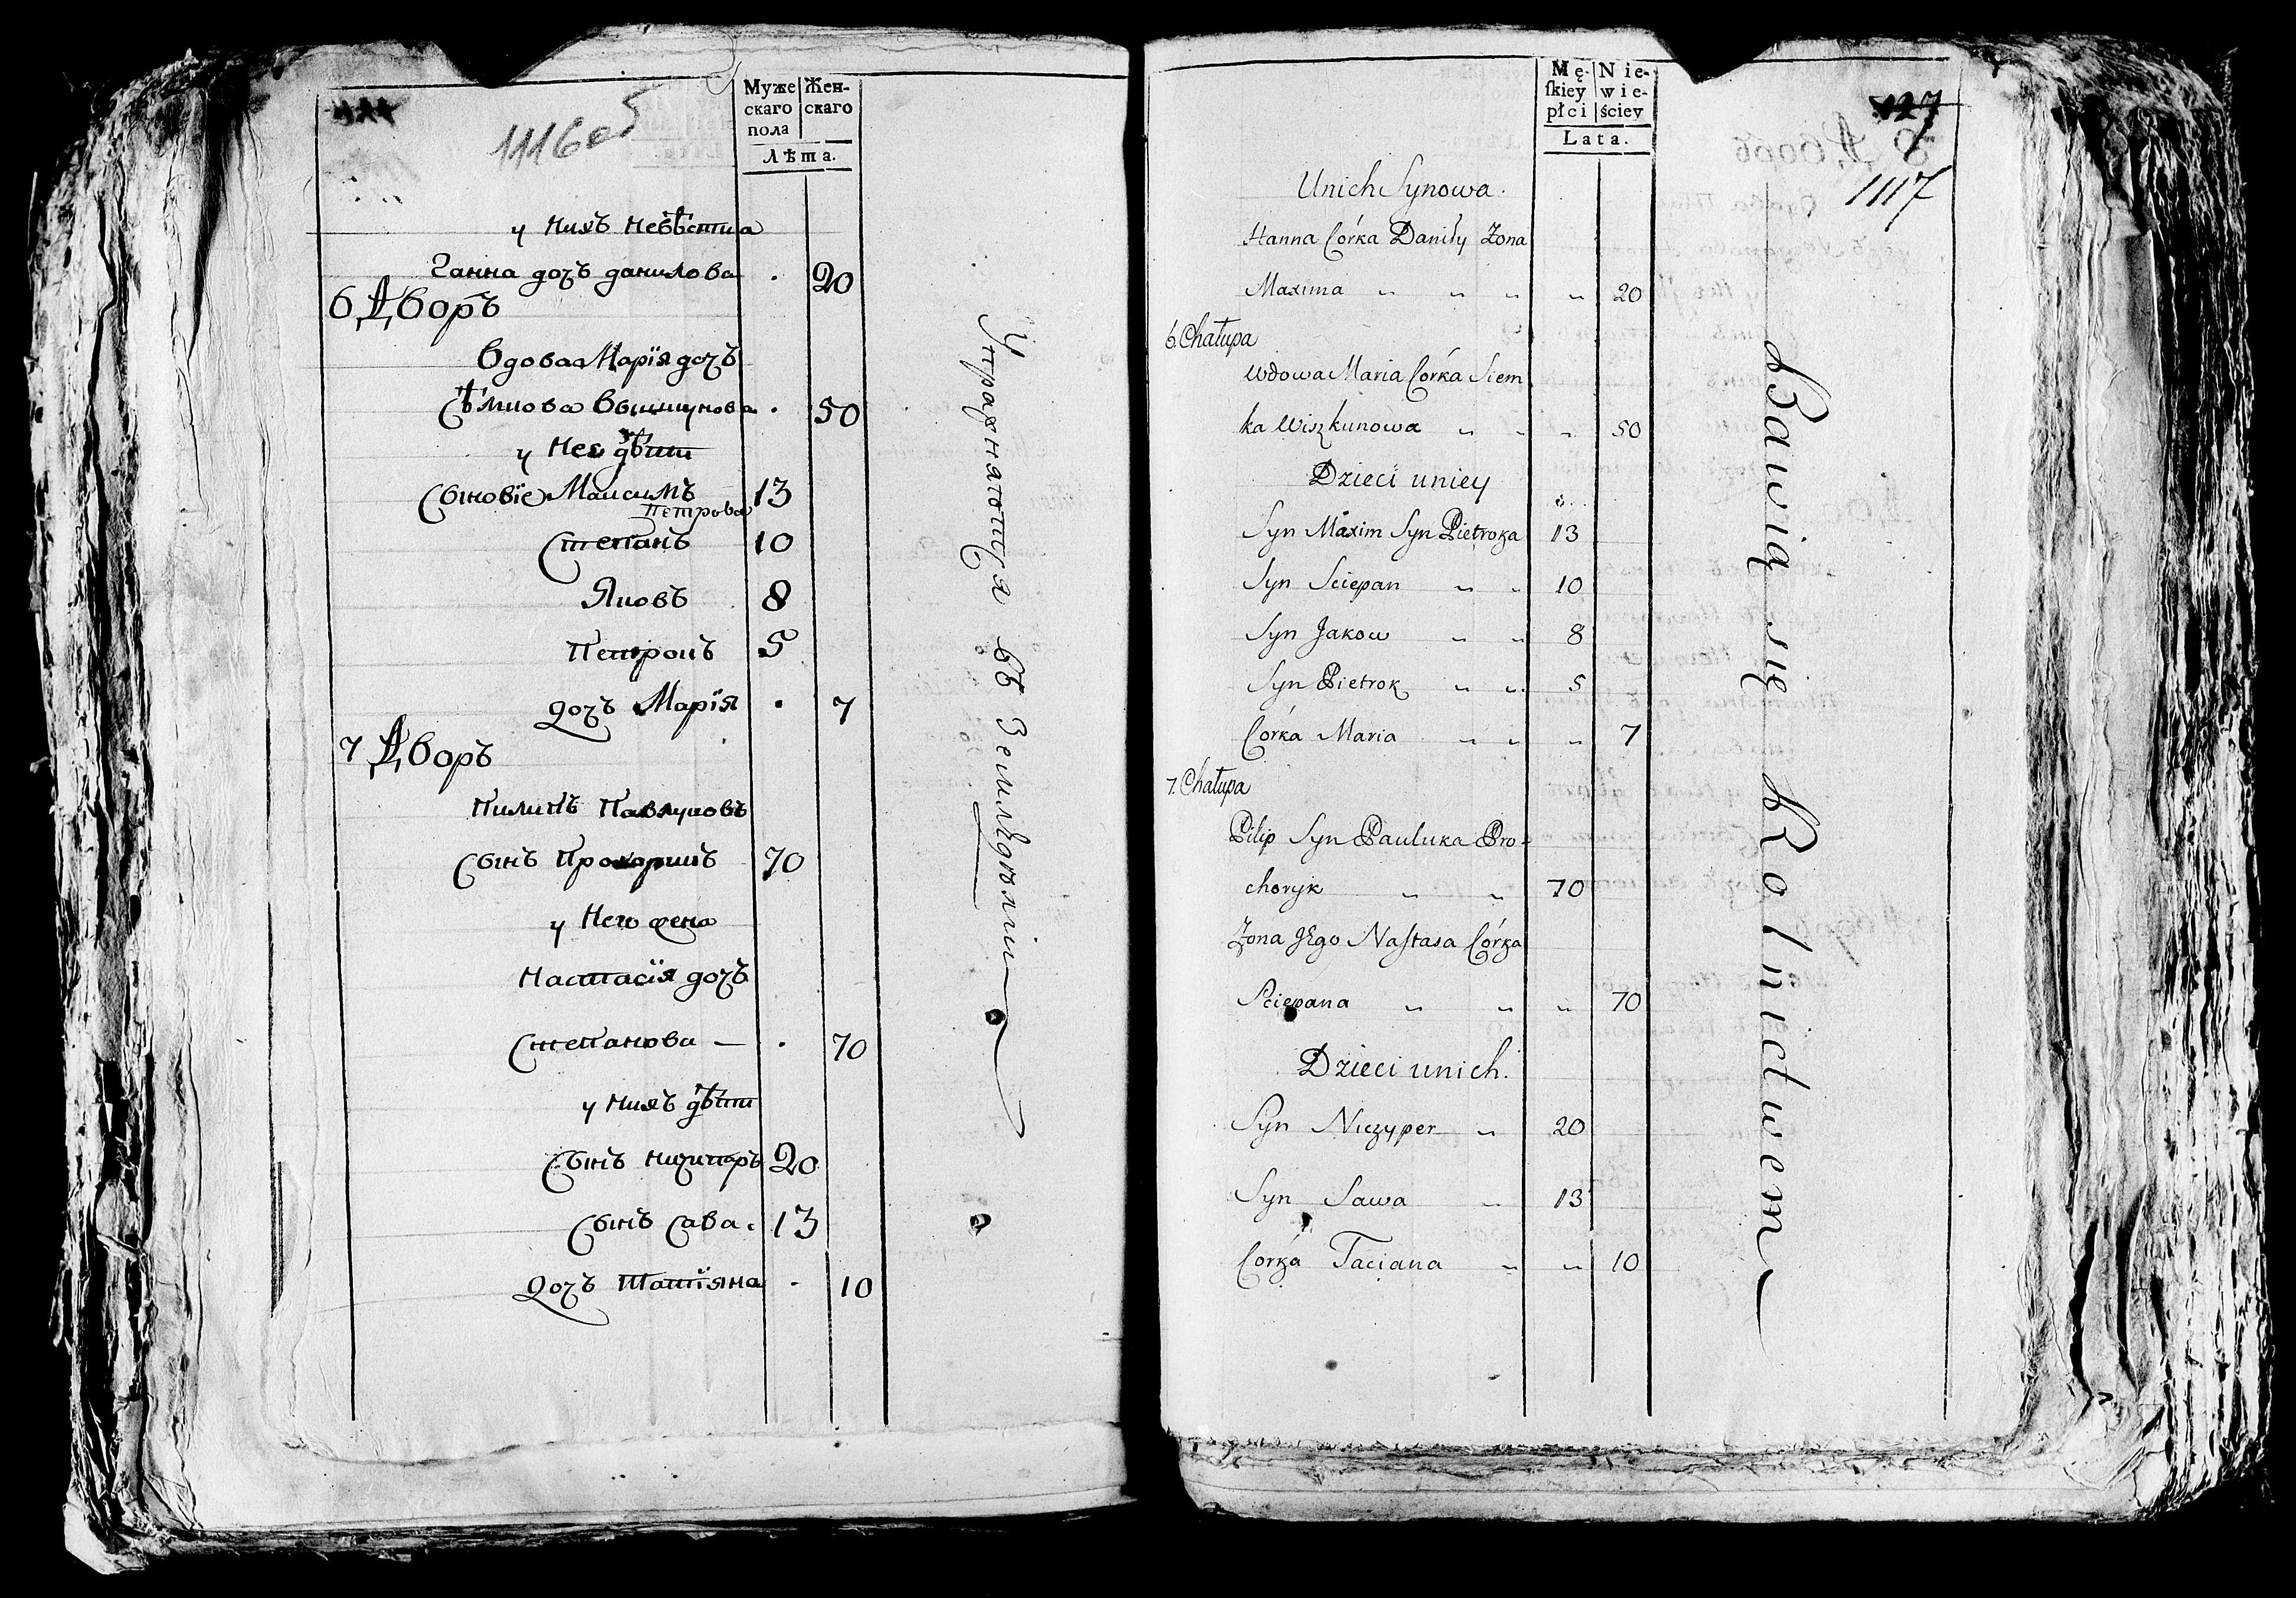 1116об
Муже
скаго
пола
Жен-
скаго
Лѣта.
у нихъ невѣстка
Ганна дочъ данилова . 20
6 Дворъ
Вдова Марія дочъ
Сѣмкова Вышкунова . 50
у нея дѣти
Сыновіе Максимъ 13
Петрова
Степанъ 10
Яковъ 8
Петрокъ 5
дочъ Марія . 7
7 Дворъ
Пилипъ Павлуковъ
Сынъ Прохорикъ 70
у него жена
Настасія дочъ
Степанова — . 70
у нихъ дѣти
Сынъ Ничипаръ 20
Сынъ Сава . 13
дочъ Татіяна . 10
Упражняются въ Земледѣліи
Mę-
ſkiey
płci
Nie-
wie-
ściey
Lata.
127
1117
Unich Synowa.
Hanna Córka Daniły Zona
Maxima " " " " 20
6. Chałupa
Wdowa Maria Córka Siem
ka Wiszkunowa " " " 50
Dzieci uniey
Syn Maxim Syn Pietroka 13
Syn Sciepan " " 10
Syn Jakow " " 8
Syn Pietrok " " 5
Córka Maria " " " 7
7. Chałupa
Pilip Syn Pauluka Pro-
choryk " " 70
Zona Jego Naſtasa Córka
Sciepana " " " 70
Dzieci unich.
Syn Niczyper " 20
Syn Sawa " 13
Corka Taciana " " 10
Bawią się Rolnictwem